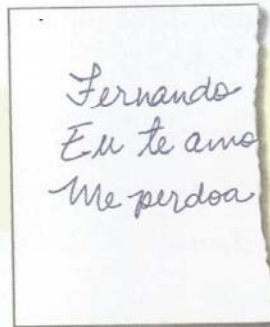 Fernando
Eu te amo
Me perdoa